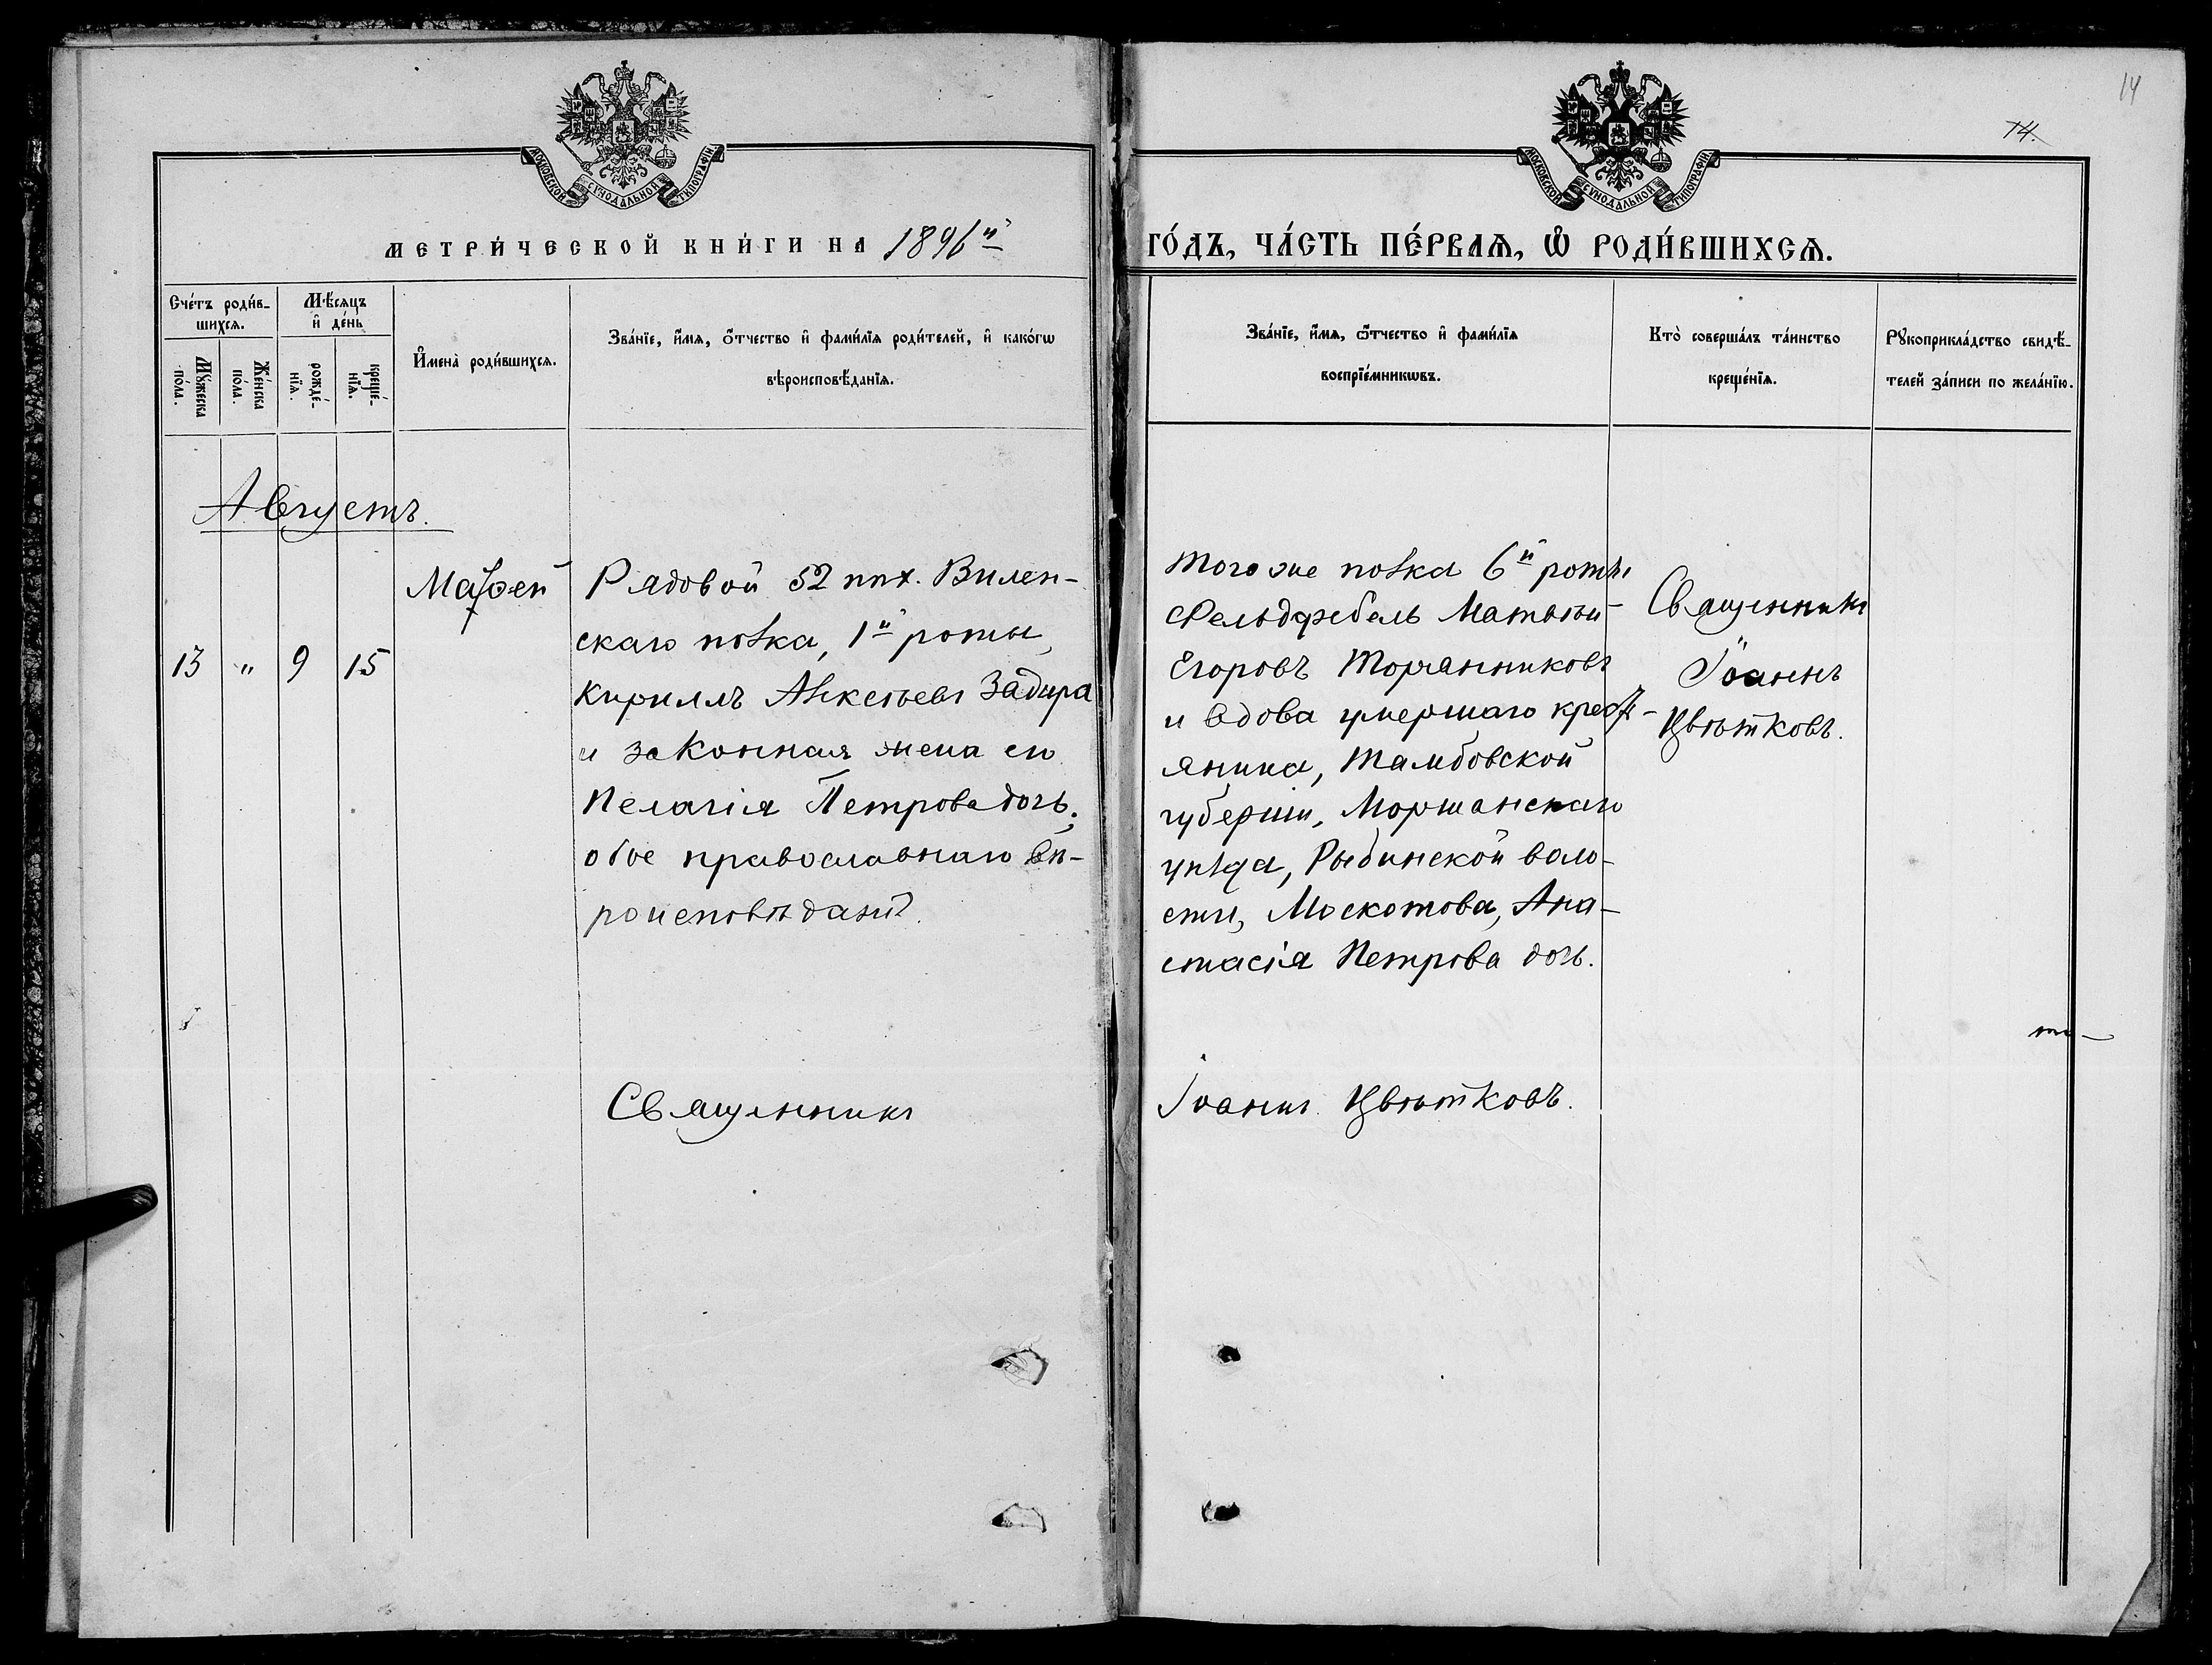 14
14.
МОСКОВСКОЙ СѴНОДАЛЬНОЙ ТИПОГРАФІИ.
МОСКОВСКОЙ СѴНОДАЛЬНОЙ ТИПОГРАФІИ.
МЕТРИ́ЧЕСКОЙ КНИ́ГИ НА 1896й
ГО́ДЪ, ЧА́СТЬ ПЕ́РВАѦ, Ѡ҆ РОДИ́ВШИХСѦ.
Сче́тъ роди́в-
шихсѧ.
Мꙋ́жеска
по́ла.
Же́нска
по́ла.
Мѣ́сѧцъ
и҆ де́нь
рожде́-
нїѧ.
креще́-
нїѧ.
И҆мена̀ роди́вшихсѧ.
Зва́нїе, и҆́мѧ, ѻ҆́тчество и҆ фами́лїѧ роди́телей, и҆ како́гѡ
вѣроисповѣ́данїѧ.
Зва́нїе, и҆́мѧ, ѻ҆́тчество и҆ фами́лїѧ
воспрїе́мникѡвъ.
Кто̀ соверша́лъ та́инство
креще́нїѧ.
Рꙋкоприкла́дство свидѣ́-
телей за́писи по жела́нїю.
Августъ.
13 " 9 15
Матѳей
Рядовой 52 пѣх. Вилен-
скаго полка, 1й роты,
Кириллъ Алексѣевъ Задира
и законная жена его
Пелагія Петрова дочь.
обое православнаго вѣ-
роисповѣданія.
Того же полка 6й роты
Фельдфебель Матвѣй
Егоровъ
и вдова умершаго крест-
янина, Тамбовской
губерніи, Моршанскаго
уѣзда, Рыбинской воло-
сти, Москотова, Ана-
стасія Петрова дочь.
Священникъ
Іоаннъ
Цвѣтковъ.
Священникъ Іоаннъ Цвѣтковъ.